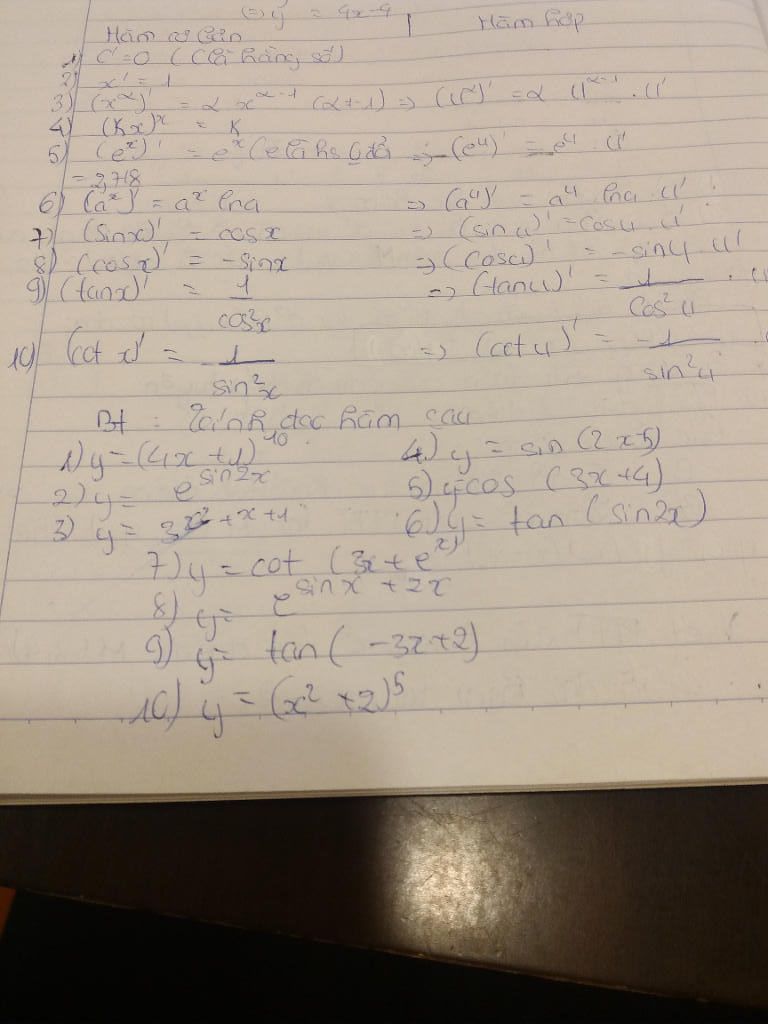 (=) y' = 4x-4
Hàm cơ bản | Hàm hợp
1) C' = 0 (C là hằng số)
2) x' = 1
3) (x^α)' = α x^(α-1) (α≠-1) => (u^α)' = α u^(α-1) . u'
4) (Kx)^x = K
5) (e^x)' = e^x (e là hs => (e^u)' = e^u . u'
= 2,718
6) (a^x)' = a^x lna => (a^u)' = a^u lna . u'
7) (sinx)' = cosx => (sin u)' = cosu . u'
8) (cosx)' = -sinx => (cosu)' = -sinu . u'
9) (tanx)' = 1/cos²x => (tanu)' = 1/cos²u . u
10) (cot x)' = -1/sin²x => (cot u)' = -1/sin²u
Bt : Tính đạo hàm sau
1) y = (4x+1)^10 4) y = sin (2x-5)
2) y = e^sin2x 5) y=cos (3x+4)
3) y = 3^(x²+x+1) 6) y = tan (sin2x)
7) y = cot (3x + e^x)
8) y = e^(sinx + 2x)
9) y = tan ( -3x+2)
10) y = (x² +2)^5